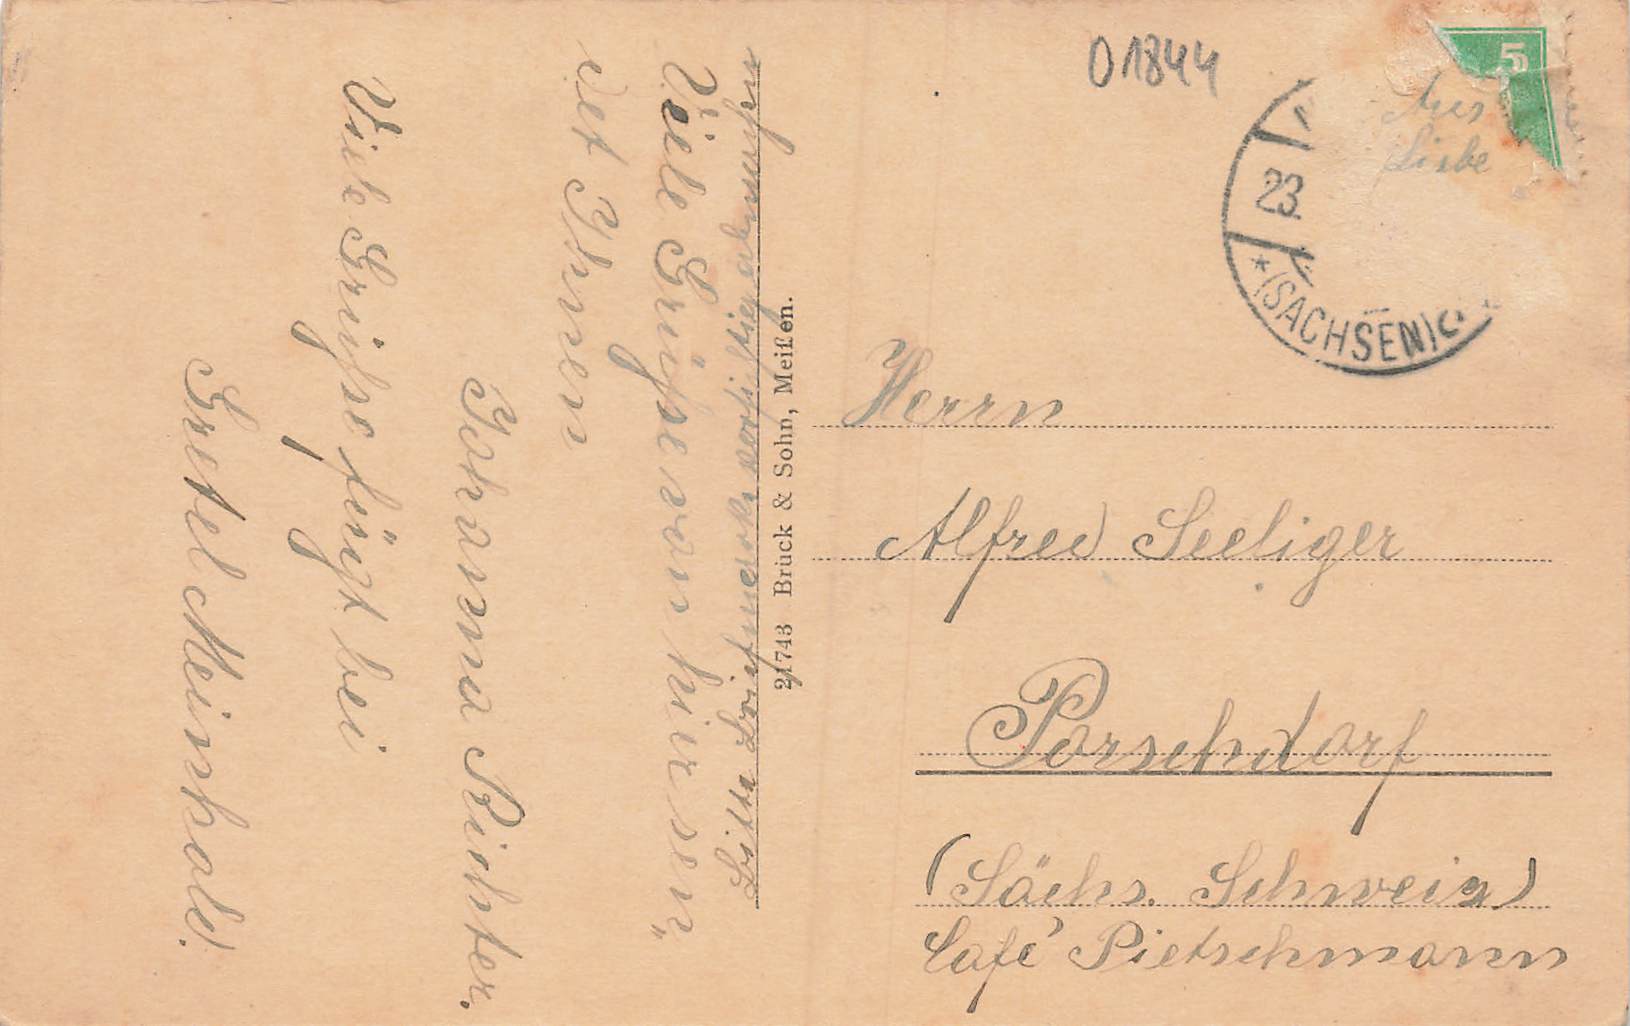 01844
5
Aus
Liebe
23.
* (SACHSEN)
Herrn
Alfred Seeliger
Porschdorf
(Sächs. Schweiz)
Café Pietschmann
21743 Brück & Sohn, Meißen.
Bitte Briefmarke vorsichtig abmachen
Viele Grüße von hier sen„
det Ihnen
Johanna Richter.
Viele Grüße fügt bei
Gretel Meinhold.